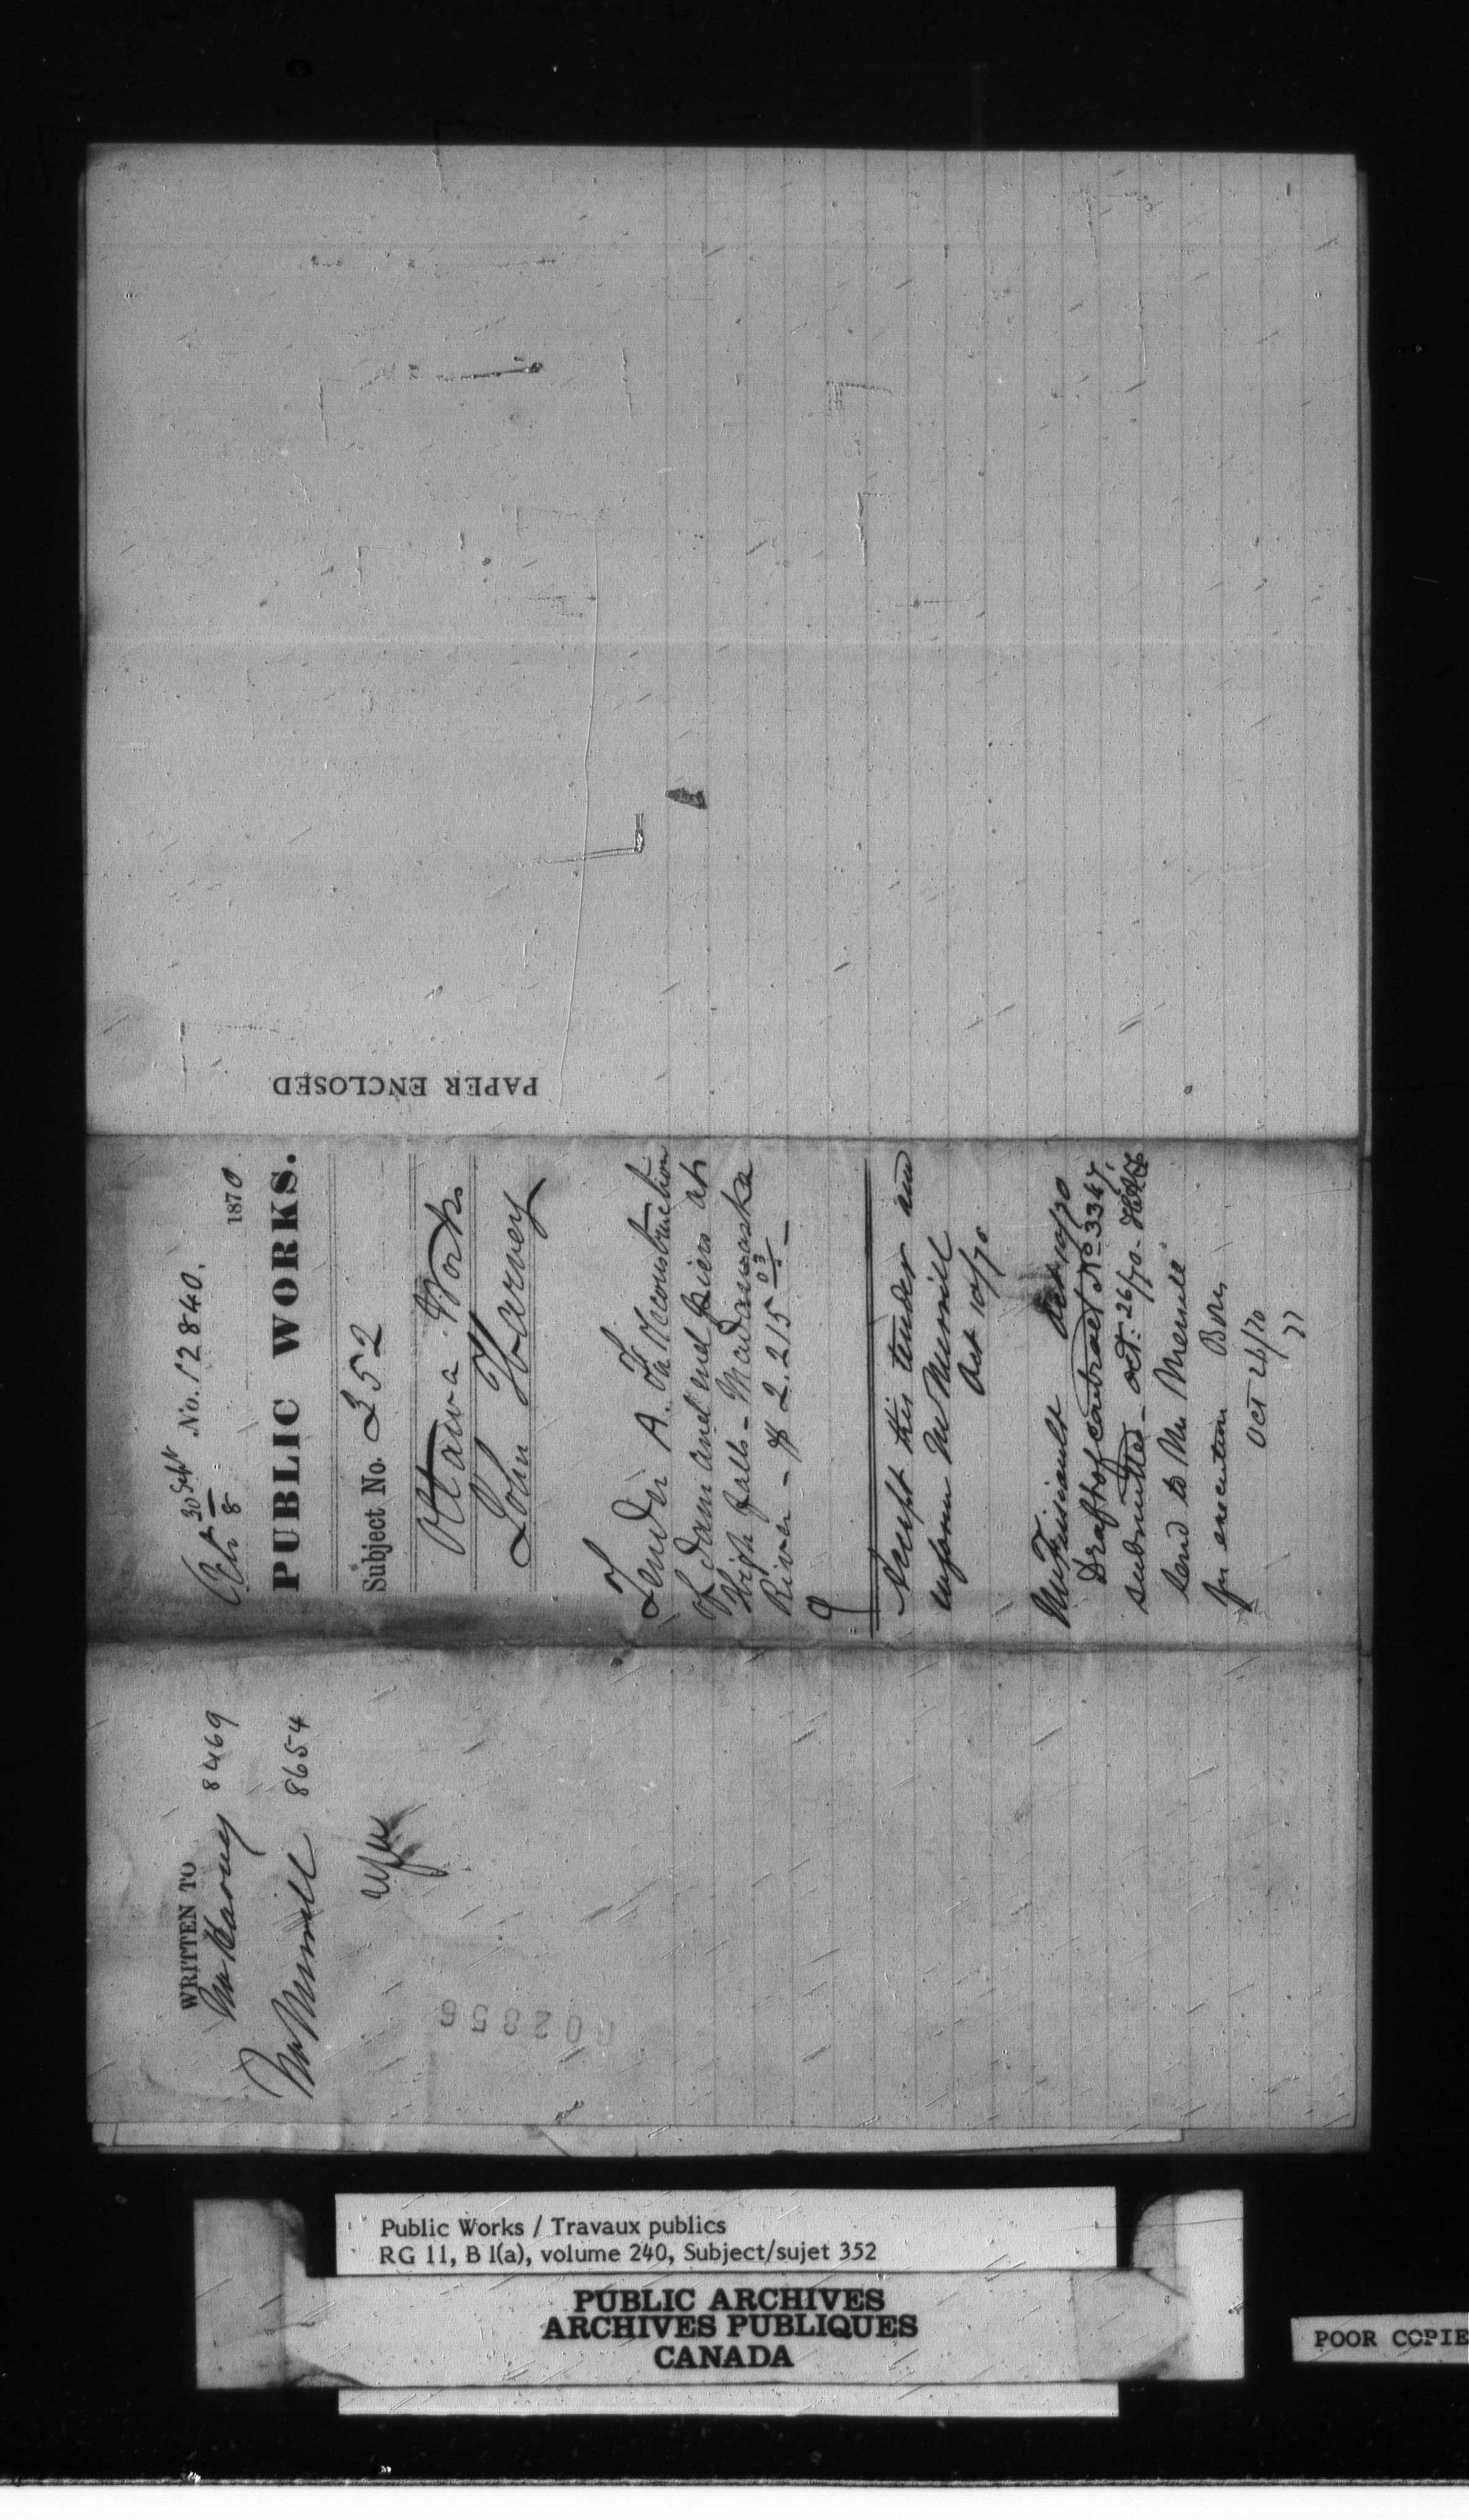 PAPER ENCLOSED
30 Sept No. 12840.
8 1870
PUBLIC WORKS.
Subject No. 352
Ottawa Works
John Harvey
Tender A. For Reconstruction
of dam and end piers at
High Falls - Madawaska
River - $2.215 03
Accept this tender and
inform Mr Merrill
Oct 10/70
Oct 10/70
Draft of contract No 3347,
submitted - Oct: 26/70 -
Send to Mr Merrill
for execution
Oct 26/70
WRITTEN TO
Mr Harvey 8469
Mr Merrill 8654
02856
Public Works / Travaux publics
RG 11, B 1(a), volume 240, Subject/sujet 352
PUBLIC ARCHIVES
ARCHIVES PUBLIQUES
CANADA
POOR COPIE